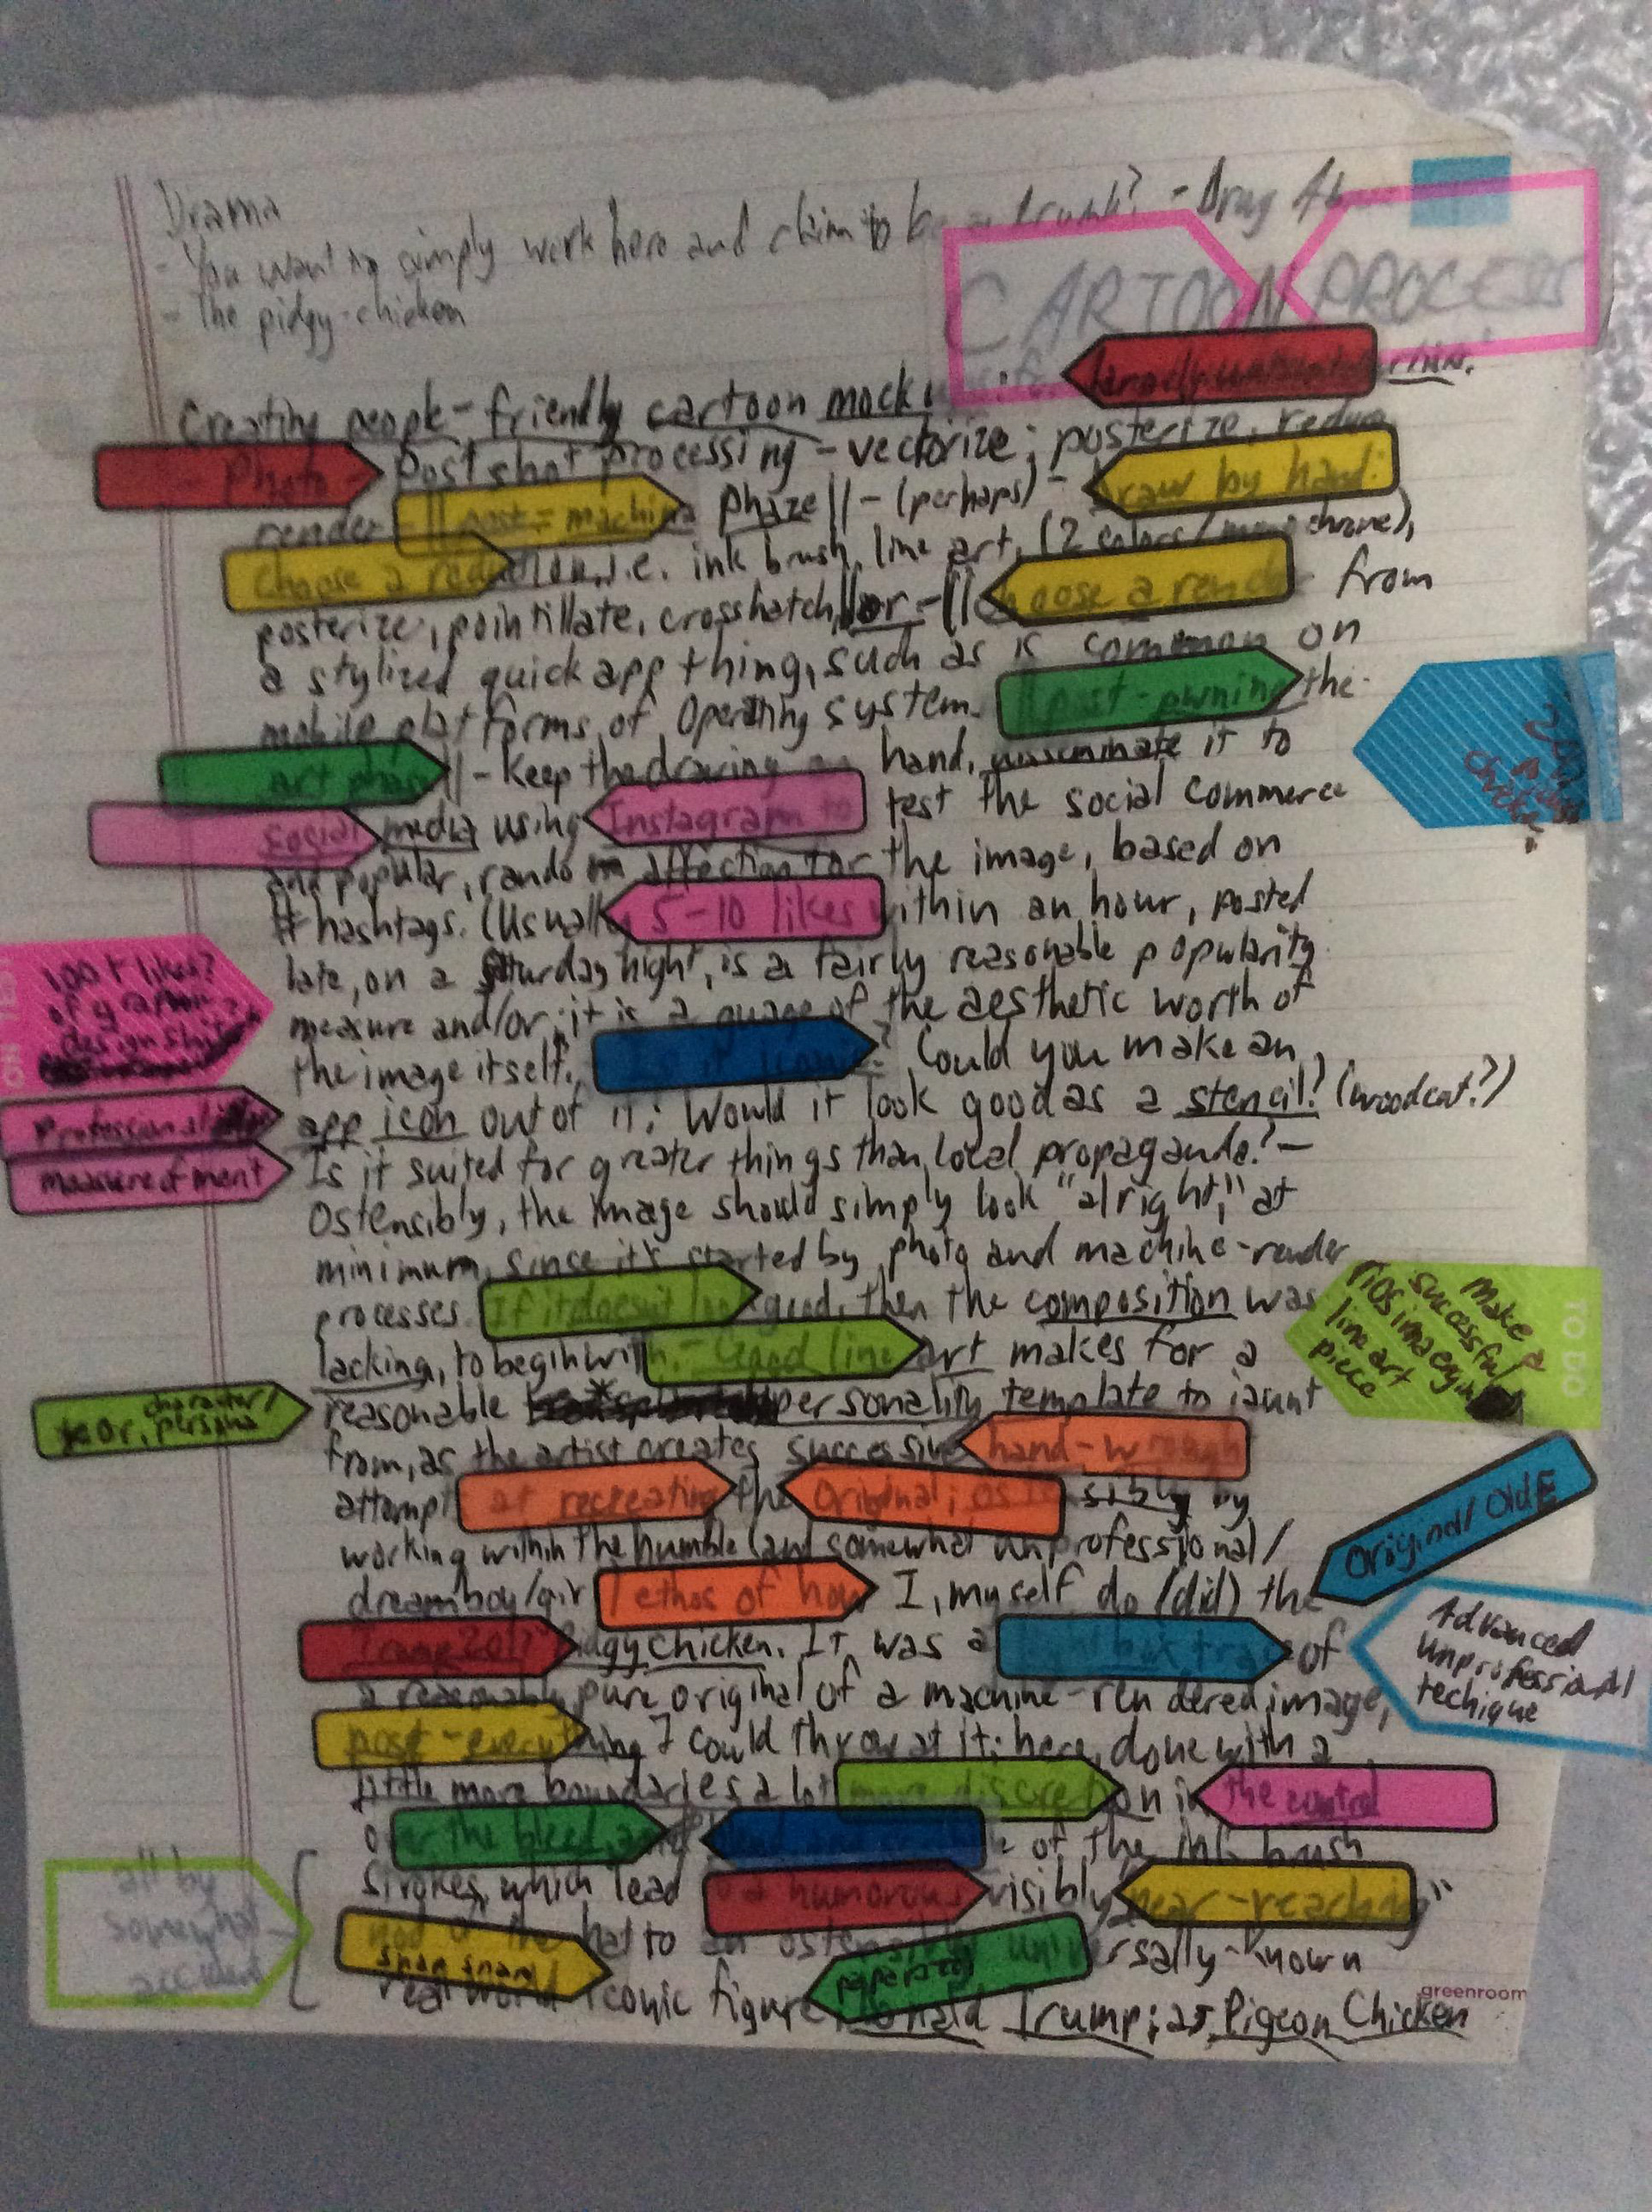 Drama
- You want to simply work here and claim to be a drunk? - Drug
- The pidgy-chicken
CARTOON PROCESS
Creating people-friendly cartoon mock
Photo - Post shot processing - vectorize; posterize, reduce
render - || post-machine phaze || - (perhaps) - Draw by hand:
choose a reduction, i.e. ink brush, line art, (2 colors/monochrome),
posterize, pointillate, crosshatch, || or - || choose a render from
a stylized quick app thing, such as is common on
mobile platforms of Operating system. || post-pwning the
art phase || - Keep the drawing on hand, disseminate it to
social media using Instagram to test the social commerce
and popular, random affection for the image, based on
# hashtags. (Usually 5-10 likes within an hour, posted
late, on a Saturday night, is a fairly reasonable popularity
measure and/or; it is a guage of the aesthetic worth of
the image itself. Is it iconic? Could you make an
app icon out of it? Would it look good as a stencil? (woodcut?)
Is it suited for greater things than local propaganda? -
Ostensibly, the image should simply look "alright," at
minimum, since it's started by photo and machine-render
processes. If it doesn't look good, then the composition was
lacking, to begin with. - Good line art makes for a
reasonable personality template to jaunt
from, as the artist creates successive hand-wrough
attempt at recreating the original; ostensibly by
working within the humble (and somewhat unprofessional/
dreamboy/girl ethos of how I, myself do (did) the
Pidgy chicken. It was a trace of
a reasonably pure original of a machine-rendered image,
post-everything I could throw at it; here, done with a
little more boundaries a lot more discretion in the control
over the bleed, of the ink brush
strokes, which lead to a humorous visibly near-reaching"
nod of the hat to an ostensibly universally-known
real world iconic figure Donald Trump; as Pigeon Chicken
greenroom
100+ likes?
of graphic
design
Professional
measurement
year, character/
persona
all by
somewhat
accident
Make a
successful
line art
piece
TO DO
Original/OldE
Advanced
Unprofessional
techique
paparazzi